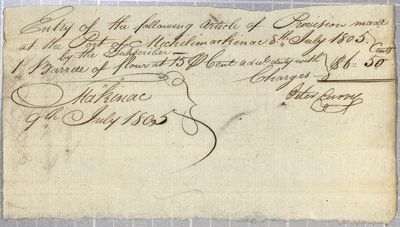 Entry of the following Article of Provision made
at the Port of Michilimackinac 8th July 1805
by the Subscriber
1 Barrel of flour at 15 P Cent ad val duty with
Charges $6=50 Cents
MacKinac
9th July 1805
Peter Curry